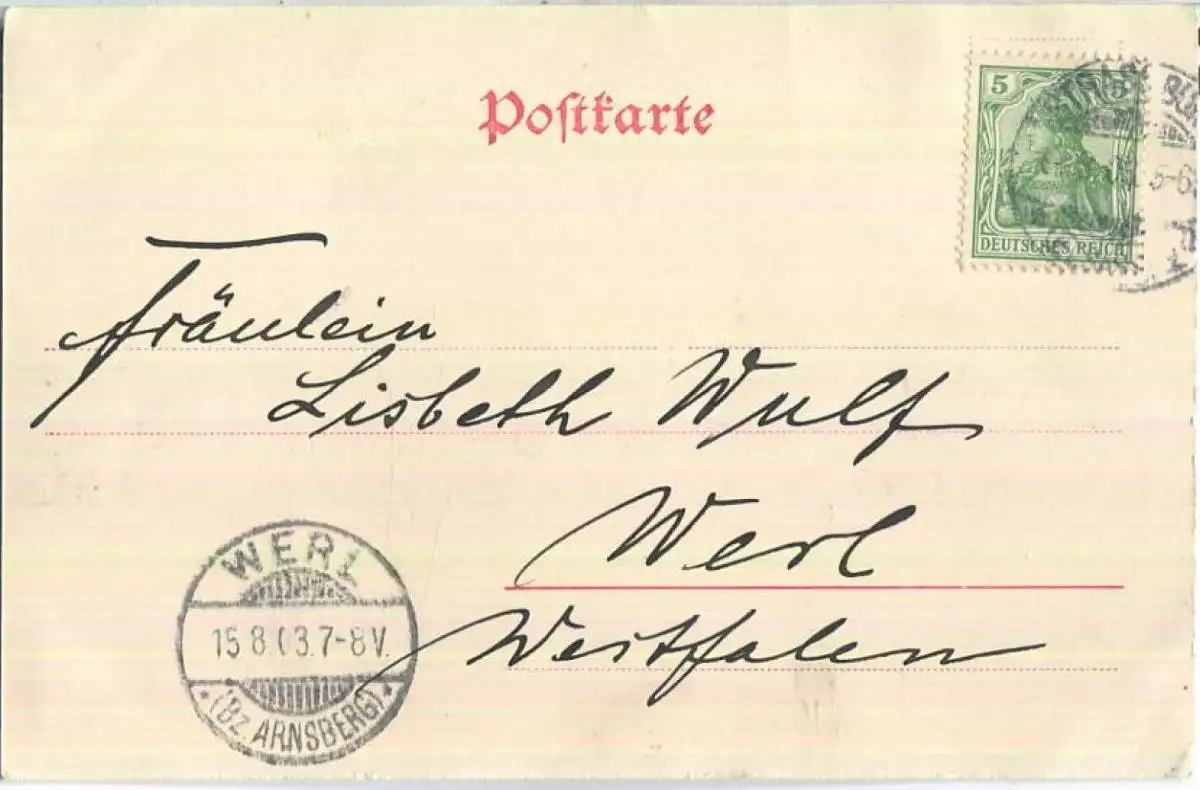 Postkarte
5 5
DEUTSCHES REICH
5-6
Fräulein
Lisbeth Wulf
Werl
Westfalen
WERL
15.8.03.7-8V.
(BZ. ARNSBERG)